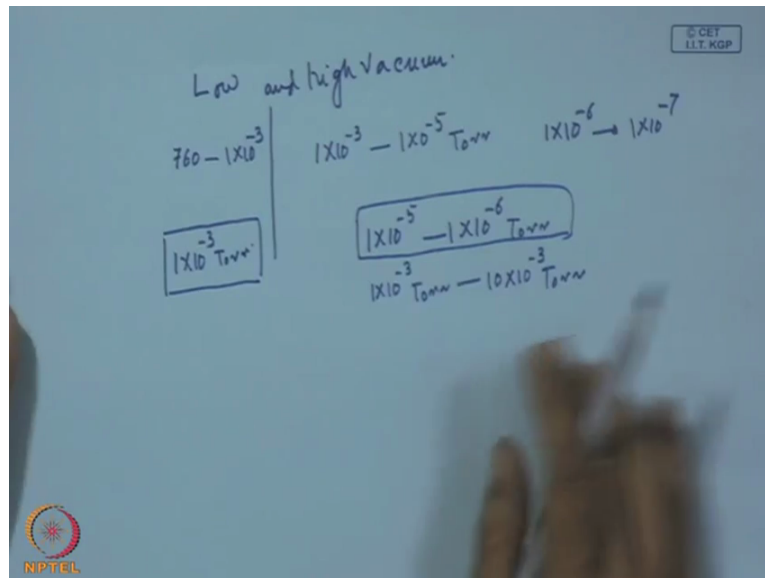 © CET
I.I.T. KGP
Low and High Vacuum.
760 – 1×10⁻³
1×10⁻³ – 1×0⁻⁵ Torr
1×10⁻⁶ → 1×10⁻⁷
1×10⁻³ Torr.
1×10⁻⁵ – 1×10⁻⁶ Torr
1×10⁻³ Torr – 10×10⁻³ Torr
NPTEL